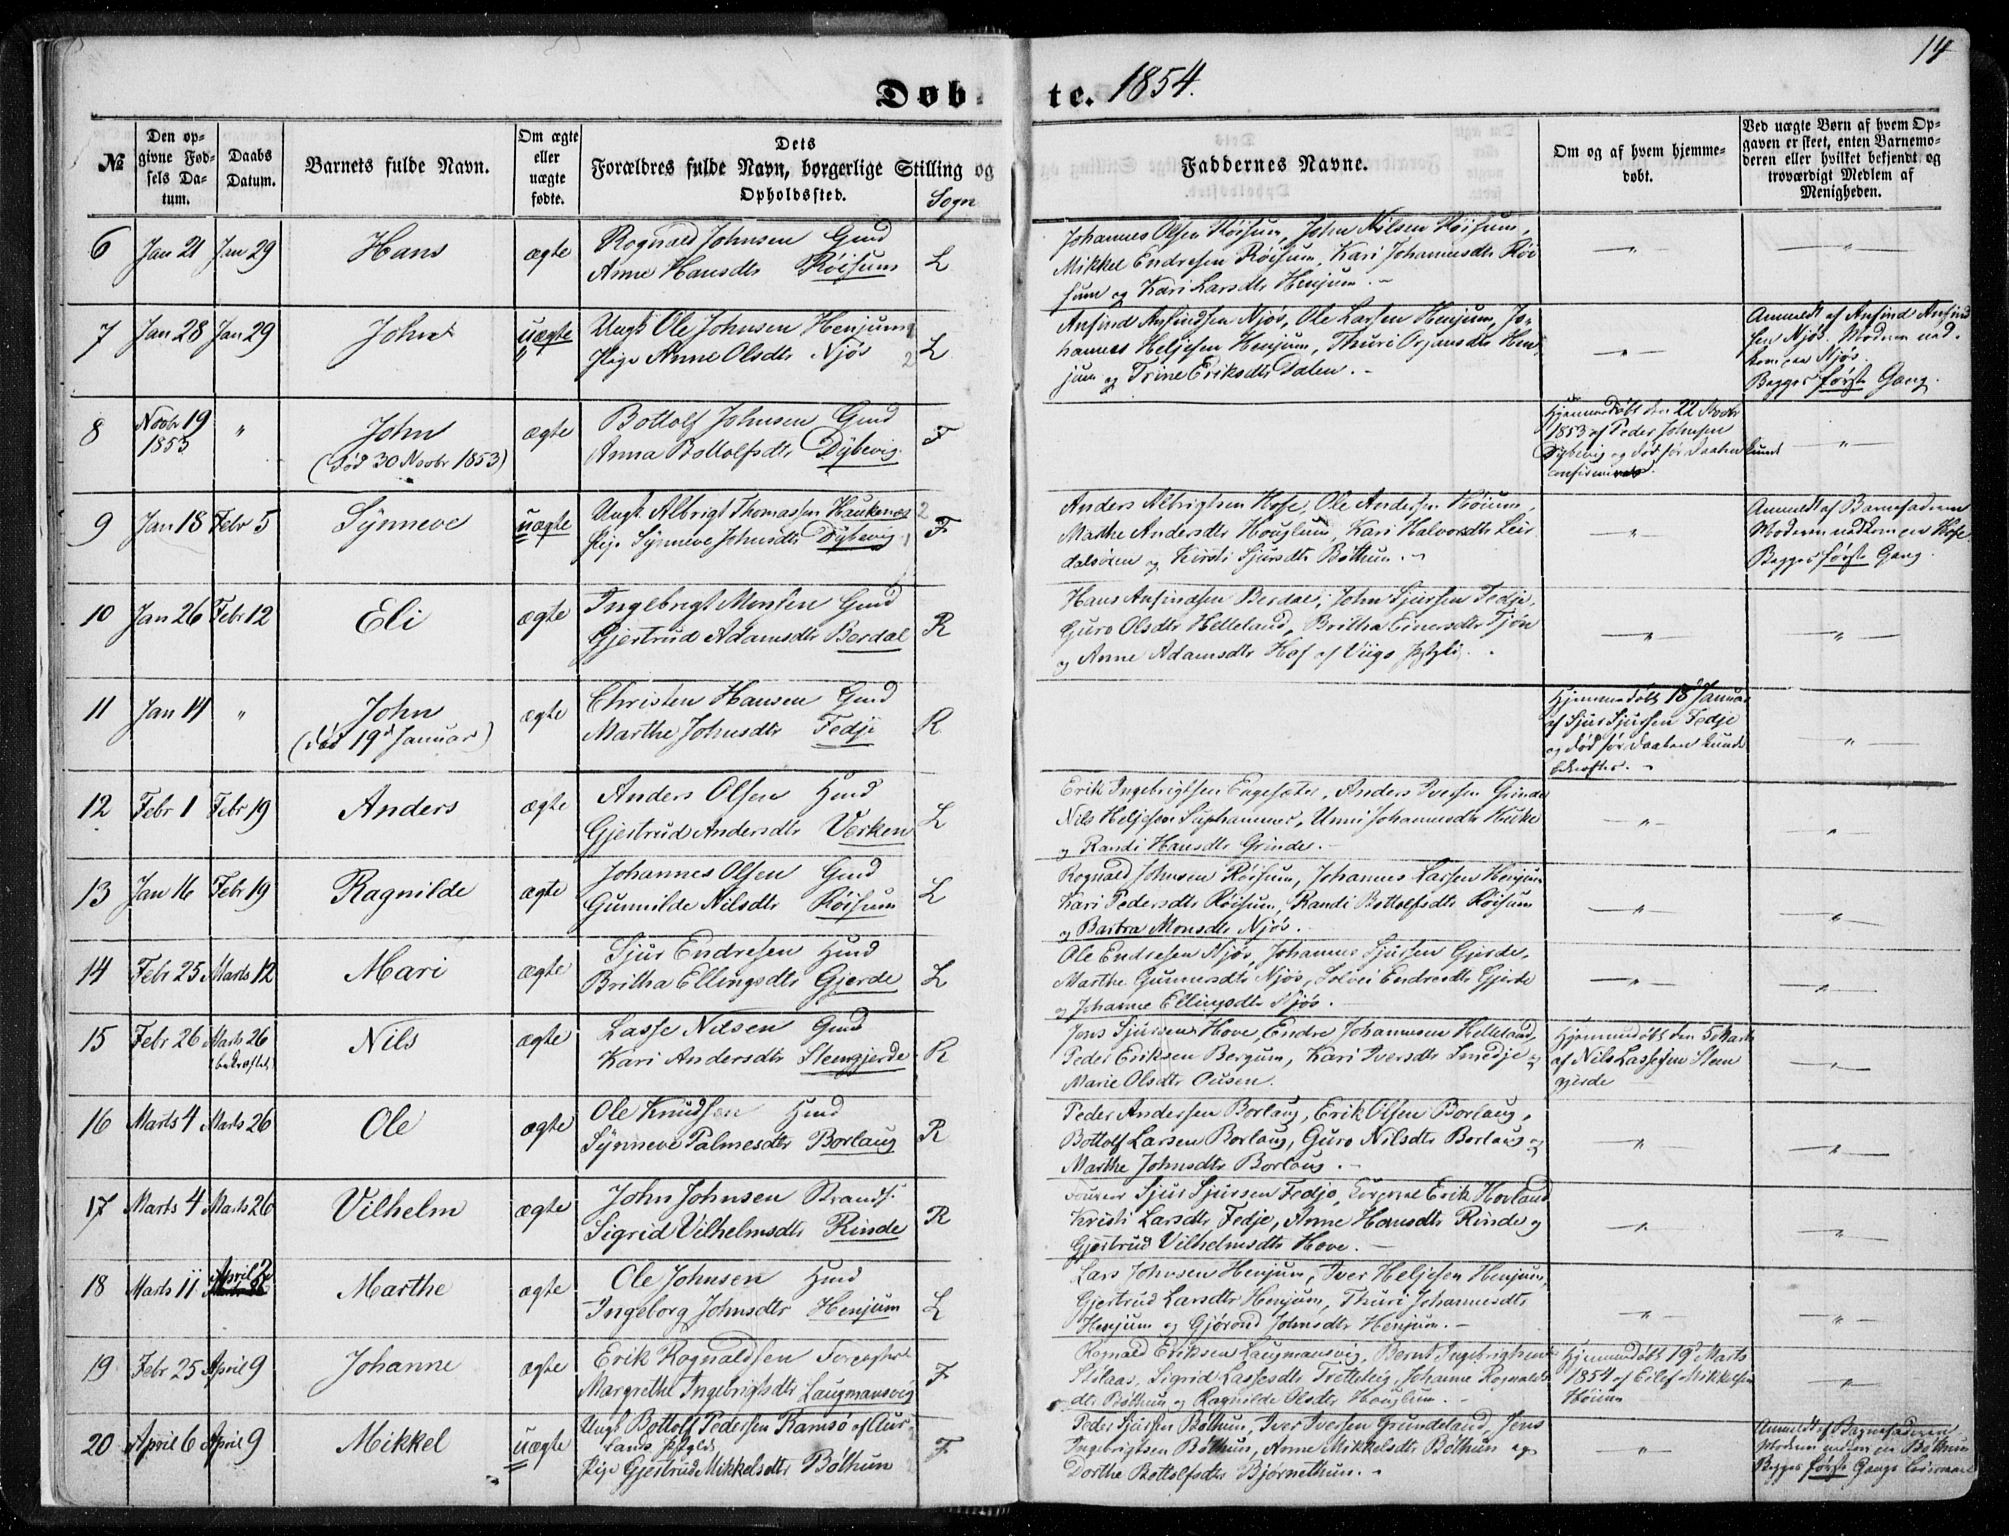 14
Døbte. 1854.
№
Den opgivne Fødsels Datum.
Daabs Datum.
Barnets fulde Navn.
Om ægte eller uægte fødte.
Dets Forældres fulde Navn, borgerlige Stilling og Opholdssted.
Sogn
Faddernes Navne.
Om og af hvem hjemmedøbt.
Ved uægte Børn af hvem Opgaven er skeet, enten Barnemoderen eller hvilket bekjendt og troværdigt Medlem af Menigheden.
6 Jan 21 Jan 29 Hans ægte Rognald Johnsen Gmd
Anne Hansdtr Röisum L
Johannes Olsen Röisum, John Nilsen Röisum,
Mikkel Endresen Röisum, Kari Johannesdtr Röi
sum og Kari Larsdtr Henjum.
7 Jan 28 Jan 29 John uægte Ungk Ole Johnsen Henjum
Pige Anne Olsdtr Njøs L
Ansind Ansindsen Njøs, Ole Larsen Henjum, Jo-
hannes Heljesen Henjum, Thuri Orjansdtr Hen
jum og Trine Eriksdtr Dalen.
Anmeldt af Ansind Ansind
sen Njøs. Modren ud-
kom paa Njøs.
Begges første Gang.
8 Novbr 19
1853 " John
(död 30 Novbr 1853)
ægte Bottolf Johnsen Gmd
Anna Bottolfsdtr Dybevig F
Hjemmedöbt den 22 Novbr
1853 af Peder Johnsen
Dybevig og död för Daaben kunde
confirmeres.
9 Jan 18 Febr 5 Synneve uægte Ungk. Albrigt Thomassen Haukenæs 2
Pige Synneve Johnsdtr Dybevig 1 F
Anders Albrigtsen Hofe, Ole Andersen Höium,
Marthe Andersdtr Houglum, Kari Halvorsdtr Leir
dalsören og Kirsti Sjursdtr Böthun.
Anmeldt af Barnefaderen
Moderen udkom en Hofe
Begges første Gang.
10 Jan 26 Febr 12 Eli ægte Ingebrigt Monsen Gmd
Gjertrud Adamsdtr Berdal R
Hans Ansindsen Berdal, John Sjursen Fedje,
Guro Olsdtr Helleland, Britha Einersdtr Tjøn
og Anne Adamsdtr Hof af Viigs
11 Jan 14 " John
(död 19d Januar)
ægte Christen Hansen Gmd
Marthe Johnsdtr Fedje R
Hjemmedöbt 18 Januar
af Sjur Sjursen Fedje
og död för Daaben kunde
bekræftes.
12 Febr 1 Febr 19 Anders ægte Anders Olsen Hmd
Gjertrud Andersdtr Verken L
Erik Ingebrigtsen Engesæter, Anders Iversen Grinde
Nils Heljesen Suphammer, Unni Johannesdtr Hüke
og Randi Hansdtr Grinde.
13 Jan 16 Febr 19 Ragnilde ægte Johannes Olsen Gmd
Gunnilde Nilsdtr Röisum L
Rognald Johnsen Röisum, Johannes Larsen Henjum
Kari Pedersdtr Röisum, Randi Bottolfsdtr Röisum
og Bartra Monsdtr Njøs.
14 Febr 25 Marts 12 Mari ægte Sjur Endresen Hmd
Britha Ellingsdtr Gjerde L
Ole Endresen Njøs, Johannes Sjursen Gjerde,
Marthe Gunnersdtr Njøs, Solvei Endresdtr Gjerde
og Johanne Ellingsdtr Njøs.
15 Febr 26 Marts 26
bekræftet Nils ægte Lasse Nilsen Gmd
Kari Andersdtr Steengjerde R
Jens Sjursen Hove, Endre Johannesen Helleland,
Peder Eriksen Bergum, Kari Iversdtr Smedje og
Marie Olsdtr Ousen.
Hjemmedöbt den 5 Marts
af Nils Lassesen Steen
gjerde
16 Marts 4 Marts 26 Ole ægte Ole Knudsen Hmd
Synneve Palmesdtr Borlaug R
Peder Andersen Borlaug, Erik Olsen Borlaug,
Bottolf Larsen Borlaug, Guro Nilsdtr Borlaug og
Marthe Johnsdtr Borlaug.
17 Marts 4 Marts 26 Vilhelm ægte John Johnsen Strands.
Sigrid Vilhelmsdtr Rinde R
Fourer Sjur Sjursen Fedje, Corporal Erik Hovland
Kristi Larsdtr Fedje, Anne Hansdtr Rinde og
Gjertrud Vilhelmsdtr Hove.
18 Marts 11 April 2 Marthe ægte Ole Johnsen Hmd
Ingeborg Johnsdtr Henjum L
Lars Johnsen Henjum, Iver Heljesen Henjum,
Gjertrud Larsdtr Henjum, Thuri Johannesdtr
Henjum og Gjörond Johnsdtr Henjum.
19 Febr 25 April 9 Johanne ægte Erik Rognaldsen
Margrethe Ingebrigtsdtr Laugmansvig F
Rognald Eriksen Laugmansvig, Bernt Ingebrigtsen
Stölaas, Sigrid Lassesdtr Tretteteig, Johanne Rognalds
dtr Böthun og Ragnilde Olsdtr Houglum.
Hjemmedöbt 19d Marts
1854 af Eilef Mikkelsen
Höium
20 April 6 April 9 Mikkel uægte Ungk Bottolf Pedersen Ramsø af Aur
lands
Pige Gjertrud Mikkelsdtr Böthun F
Peder Sjursen Böthun, Iver Iversen Grundeland, Jens
Ingebrigtsen Böthun, Anne Mikkelsdtr Böthun og
Dorthe Bottolfsdtr Bjørnethun.
Anmeldt af Barnefaderen
Modren udkom en Böthun
Begges første Gangs Leiermaal